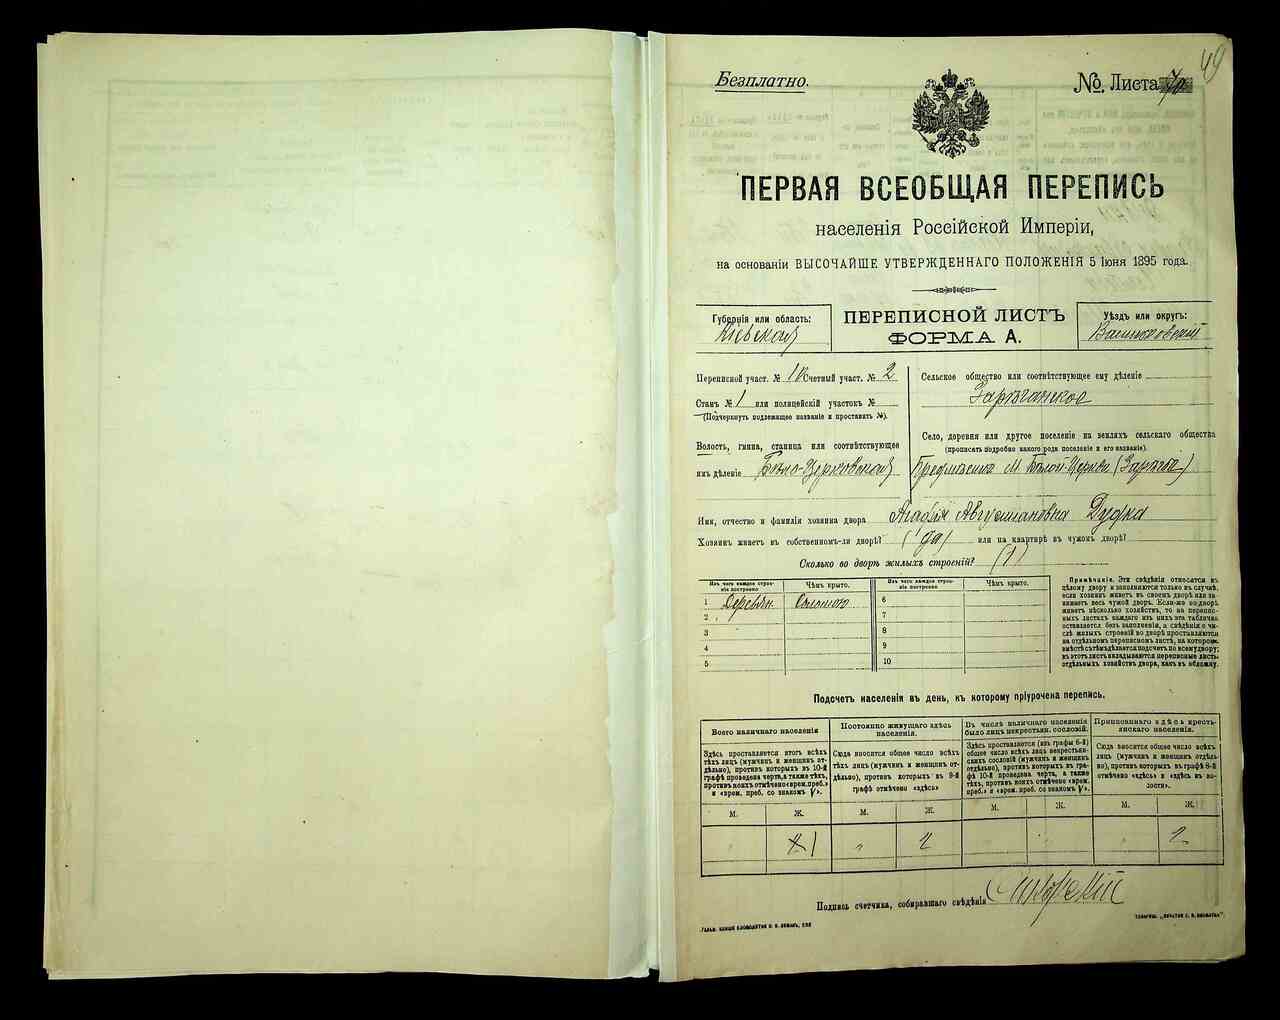 49
Безплатно.
№. Листа 70
ПЕРВАЯ ВСЕОБЩАЯ ПЕРЕПИСЬ
населенія Россійской Имперіи,
на основаніи ВЫСОЧАЙШЕ УТВЕРЖДЕННАГО ПОЛОЖЕНІЯ 5 Іюня 1895 года.
Губернія или область:
Кіевская
ПЕРЕПИСНОЙ ЛИСТЪ
ФОРМА А.
Уѣздъ или округъ:
Васильковскій
Переписной участ. № 10 Счетный участ. № 2
Станъ № 1 или полицейскій участокъ №
(Подчеркнуть подлежащее названіе и проставить №).
Волость, гмина, станица или соотвѣтствующее
имъ дѣленіе Бѣло-Церковская
Сельское общество или соотвѣтствующее ему дѣленіе
Зарѣчанское
Село, деревня или другое поселеніе на земляхъ сельскаго общества
(прописать подробно какого рода поселеніе и его названіе).
Предмѣстье м. Бѣлой-Церкви (Зарѣчье)
Имя, отчество и фамилія хозяина двора Агафія Августиновна Дудка
Хозяинъ живетъ въ собственномъ-ли дворѣ? (да) или на квартирѣ въ чужомъ дворѣ?
Сколько во дворѣ жилыхъ строеній? (1)
Изъ чего каждое строеніе построено
Чѣмъ крыто.
Изъ чего каждое строеніе построено
Чѣмъ крыто.
1 Деревян. Соломою
2
3
4
5
6
7
8
9
10
Примѣчаніе. Эти свѣдѣнія относятся къ
цѣлому двору и заполняются только въ случаѣ,
если хозяинъ живетъ въ своемъ дворѣ или занимаетъ
весь чужой дворъ. Если-же во дворѣ
живетъ нѣсколько хозяйствъ, то на переписныхъ
листахъ каждаго изъ нихъ эта табличка
оставляется безъ заполненія, а свѣдѣнія о числѣ
жилыхъ строеній во дворѣ проставляются
на отдѣльномъ переписномъ листѣ, на которомъ
вмѣстѣ съ тѣмъ дѣлается подсчетъ по всему двору;
въ этотъ листъ вкладываются переписные листы
отдѣльныхъ хозяйствъ двора, какъ въ обложку.
Подсчетъ населенія въ день, къ которому пріурочена перепись.
Всего наличнаго населенія
Здѣсь проставляется итогъ всѣхъ
тѣхъ лицъ (мужчинъ и женщинъ отдѣльно),
противъ которыхъ въ 10-й
графѣ проведена черта, а также тѣхъ,
противъ коихъ отмѣчено «врем. преб.»
и «врем. преб. со знакомъ V».
Постоянно живущаго здѣсь
населенія.
Сюда вносится общее число всѣхъ
тѣхъ лицъ (мужчинъ и женщинъ отдѣльно),
противъ которыхъ въ 9-й
графѣ отмѣчено «здѣсь»
Въ числѣ наличнаго населенія
было лицъ некрестьян. сословій.
Здѣсь проставляется (изъ графы 6-й)
общее число всѣхъ лицъ некрестьянскихъ
сословій (мужчинъ и женщинъ
отдѣльно), противъ которыхъ въ графѣ
10-й проведена черта, а также
тѣхъ, противъ коихъ отмѣчено «врем.
преб.» и «врем. преб. со знакомъ V».
Приписаннаго здѣсь крестьянскаго
населенія.
Сюда вносится общее число всѣхъ
лицъ (мужчинъ и женщинъ отдѣльно),
противъ которыхъ въ графѣ 8-й
отмѣчено «здѣсь» и «здѣсь въ волости».
М. Ж. М. Ж. М. Ж. М. Ж.
1 2 2
Подпись счетчика, собиравшаго свѣдѣнія